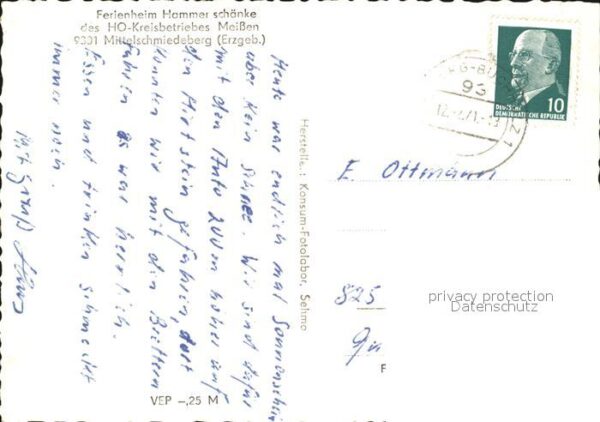 Ferienheim Hammerschänke
des HO-Kreisbetriebes Meißen
9331 Mittelschmiedeberg (Erzgeb.)
Heute war endlich mal Sonnenschein
aber kein Schnee. Wir sind dafür
mit dem Auto 200 m höher auf
den Hirtstein gefahren, dort
konnten wir mit den Brettern
fahren. Es war herrlich.
Essen und trinken schmeckt
immer noch.
Mit Gruß
Hersteller: Konsum-Fotolabor, Sehma
VEP -,25 M
93
12.-2.71.-1
DEUTSCHE
DEMOKRATISCHE REPUBLIK
10
E. Ottmann
825
privacy protection
Datenschutz
F